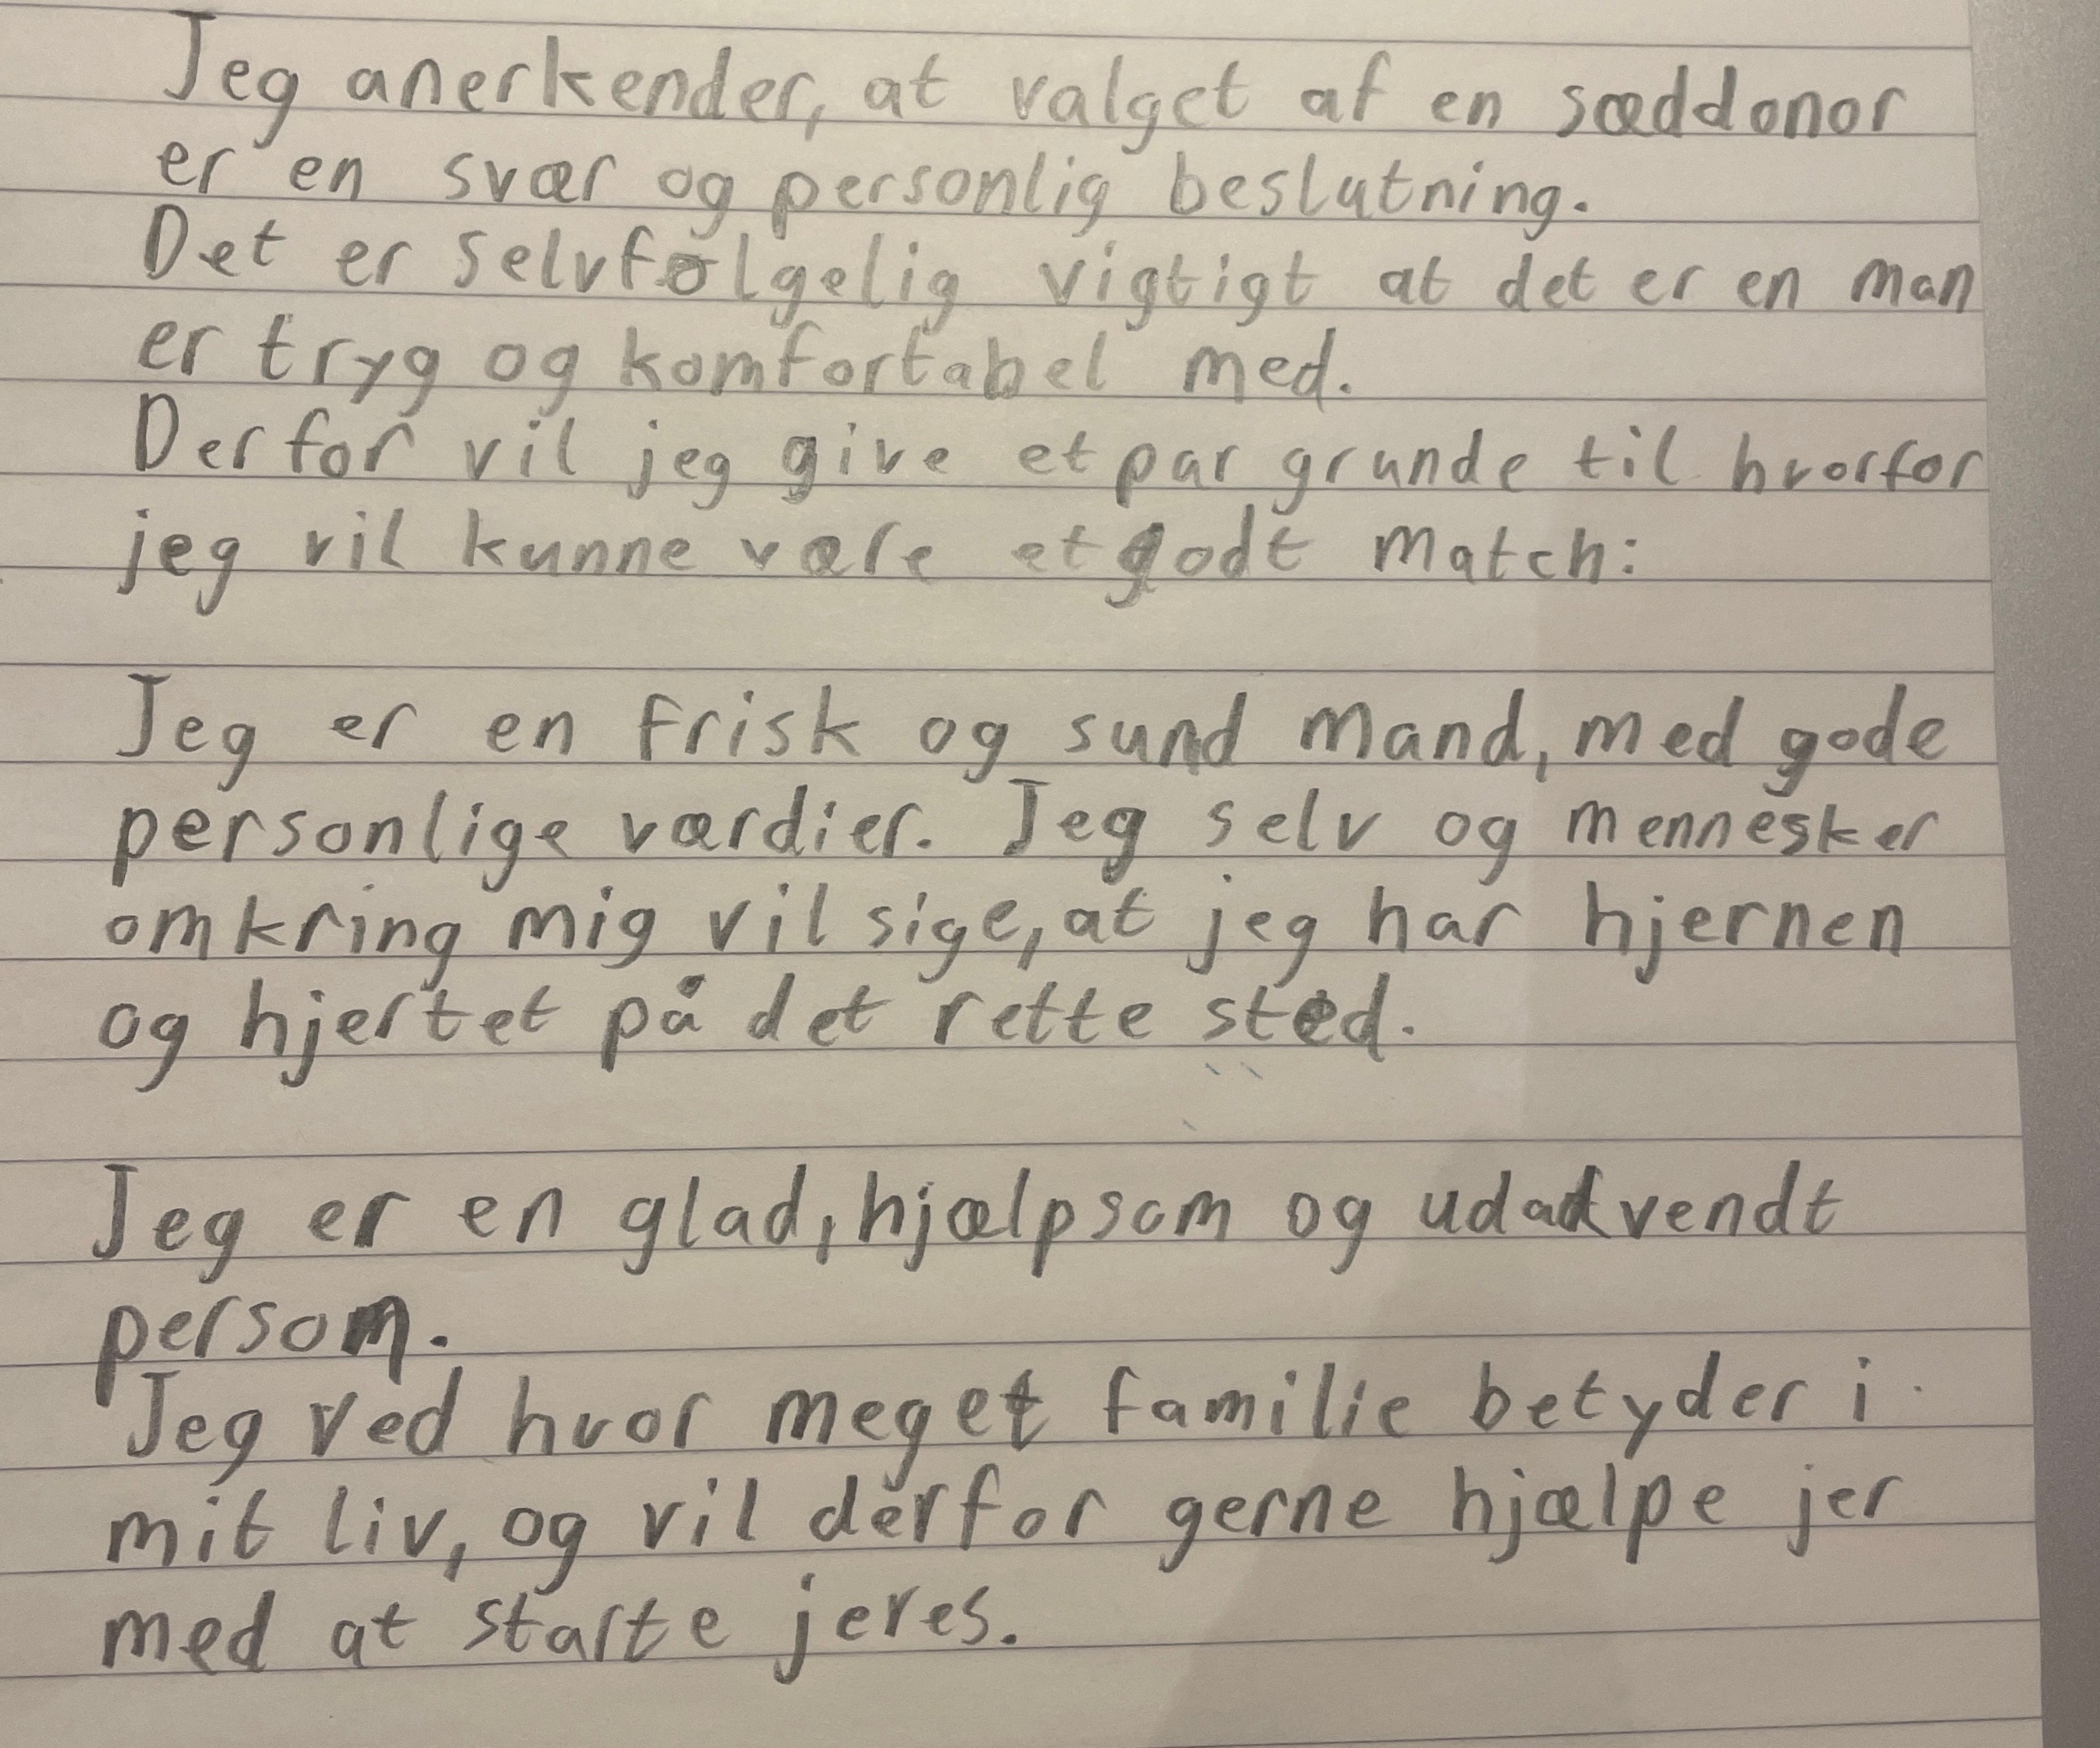 Jeg anerkender, at valget af en sæddonor
er en svær og personlig beslutning.
Det er selvfølgelig vigtigt at det er en man
er tryg og komfortabel med.
Derfor vil jeg give et par grunde til hvorfor
jeg vil kunne være et godt match:
Jeg er en frisk og sund mand, med gode
personlige værdier. Jeg selv og mennesker
omkring mig vil sige, at jeg har hjernen
og hjertet på det rette sted.
Jeg er en glad, hjælpsom og udadvendt
person.
Jeg ved hvor meget familie betyder i
mit liv, og vil derfor gerne hjælpe jer
med at starte jeres.